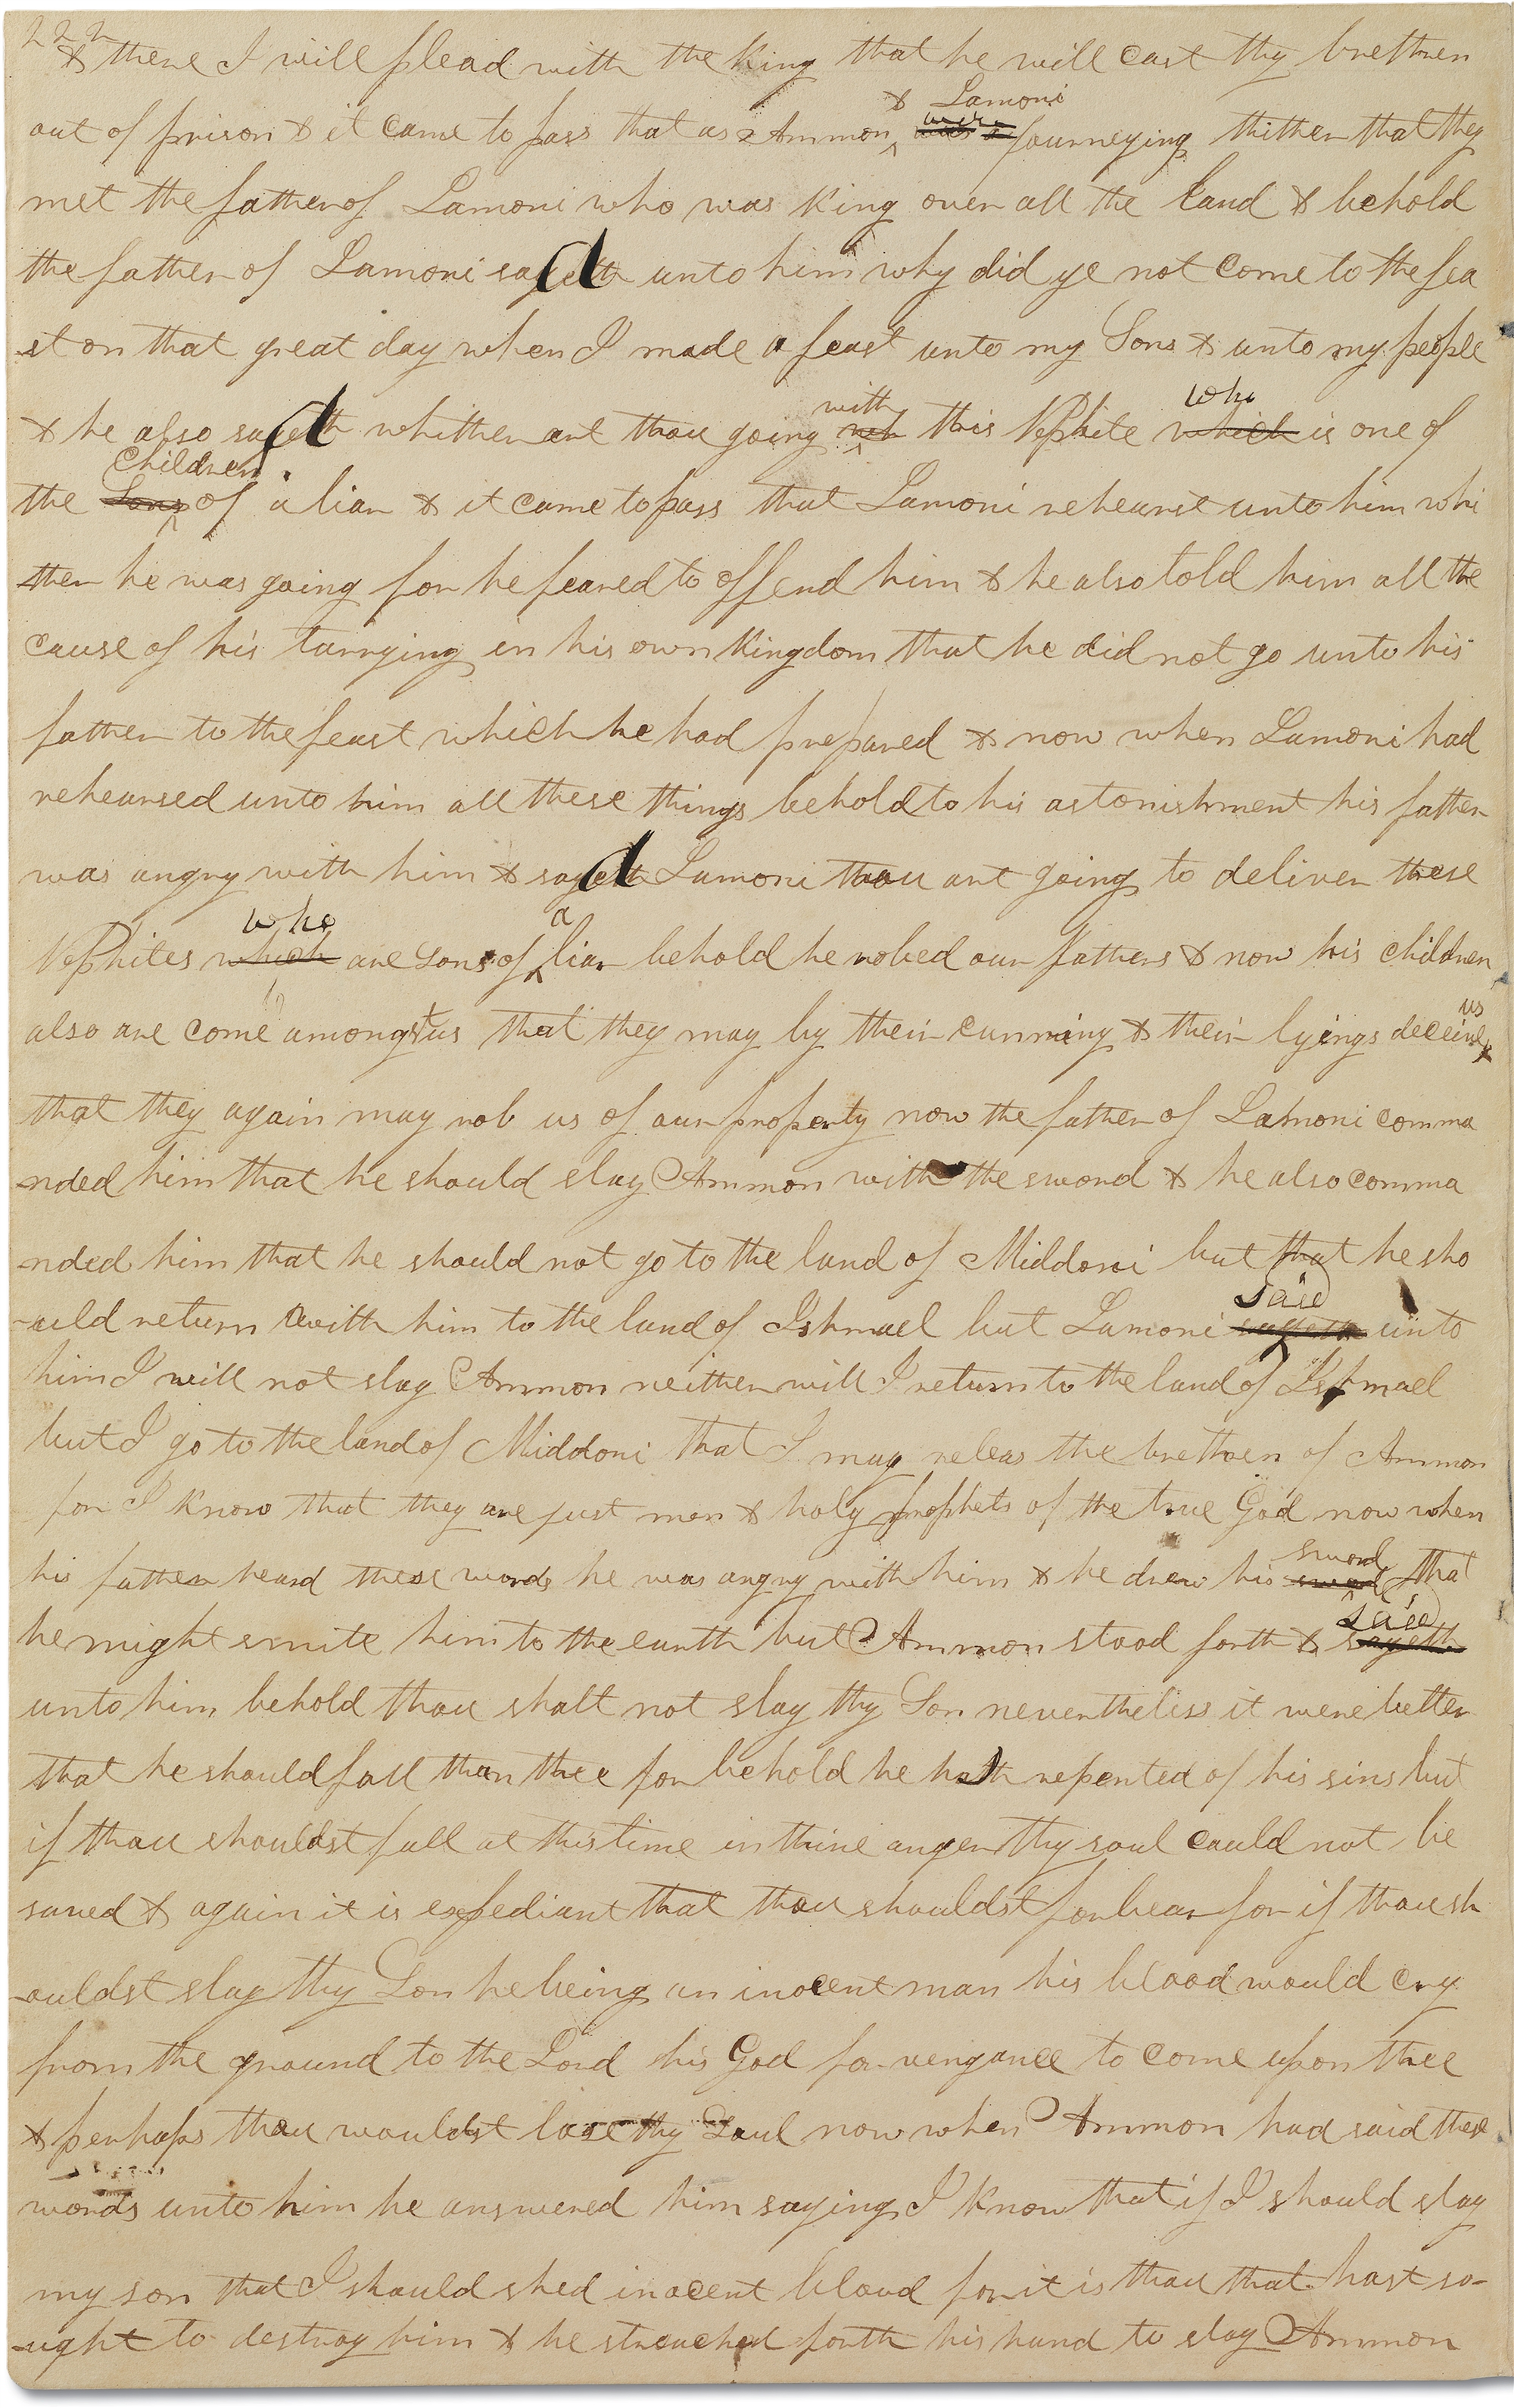 222
& there I will plead with the king that he will cast thy brethren
& Lamoni
out of prison & it came to pass that as Ammon were journeying thither that they
met the father of Lamoni who was King over all the land & behold
the father of Lamoni sayeth d unto him why did ye not come to the fea
-st on that great day when I made a feast unto my Sons & unto my people
with who
& he also sayeth d whither art thou going this Nephite which is one of
Children
the Sons of a liar & it came to pass that Lamoni rehearst unto him whi
-ther he was going for he feared to offend him & he also told him all the
cause of his tarrying in his own Kingdom that he did not go unto his
father to the feast which he had prepared & now when Lamoni had
rehearsed unto him all these things behold to his astonishment his father
was angry with him & sayeth d Lamoni thou art going to deliver these
who a
Nephites which are sons of liar behold he robed our fathers & now his children
us
also are come amongst us that they may by their cunning & their lyings deceive
that they again may rob us of our property now the father of Lamoni comma
-nded him that he should slay Ammon with the sword & he also comma
-nded him that he should not go to the land of Middoni but that he sho
said
-uld return with him to the land of Ishmael but Lamoni sayeth unto
him I will not slay Ammon neither will I return to the land of Ishmael
but I go to the land of Middoni that I may releas the brethren of Ammon
for I know that they are just men & holy prophets of the true God now when
sword
his father heard these words he was angry with him & he drew his sword that
said
he might smite him to the earth but Ammon stood forth & sayeth
unto him behold thou shalt not slay thy Son nevertheless it were better
that he should fall than thee for behold he hath repented of his sins but
if thou shouldst fall at this time in thine anger thy soul could not be
saved & again it is expediant that thou shouldst forbear for if thou sh
-ouldst slay thy Son he being an inocent man his blood would cry
from the ground to the Lord his God for vengance to come upon thee
& perhaps thou wouldst lose thy Soul now when Ammon had said these
words unto him he answered him saying I know that if I should slay
my son that I should shed inocent blood for it is thou that hast so-
-ught to destroy him & he streached forth his hand to slay Ammon